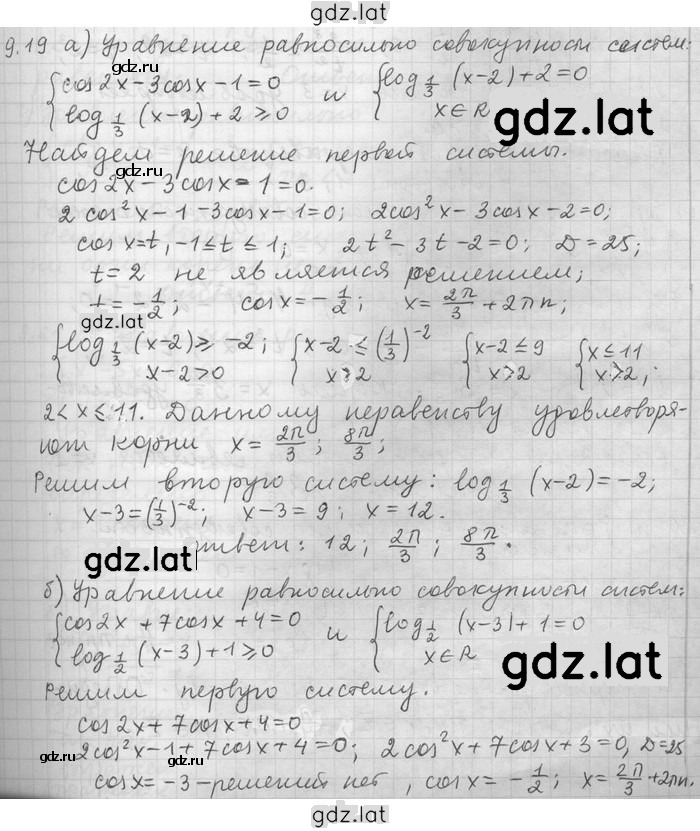 gdz.lat
9.19 а) Уравнение равносильно совокупности систем:
gdz.lat
{cos2x-3cosx-1=0 и {log_{1/3}(x-2)+2=0
{log_{1/3}(x-2)+2≥0 {x∈R
gdz.lat
Найдем решение первой системы.
cos2x-3cosx-1=0.
2cos²x-1-3cosx-1=0; 2cos²x-3cosx-2=0;
cosx=t, -1≤t≤1; 2t²-3t-2=0; D=25;
t=2 не является решением;
gdz.lat
t=-1/2; cosx=-1/2; x=2π/3+2πn;
gdz.lat
{log_{1/3}(x-2)≥-2; {x-2≤(1/3)^{-2} {x-2≤9 {x≤11
{x-2>0 {x>2 {x>2 {x>2,
2<x≤11. Данному неравенству удовлетворя-
ют корни x=2π/3; 8π/3;
Решим вторую систему: log_{1/3}(x-2)=-2;
x-3=(1/3)^{-2}; x-3=9; x=12.
gdz.lat
Ответ: 12; 2π/3; 8π/3.
б) Уравнение равносильно совокупности систем:
gdz.lat
{cos2x+7cosx+4=0 и {log_{1/2}(x-3)+1=0
{log_{1/2}(x-3)+1≥0 {x∈R
gdz.lat
Решим первую систему.
cos2x+7cosx+4=0
gdz.lat
2cos²x-1+7cosx+4=0; 2cos²x+7cosx+3=0, D=25
gdz.lat
cosx=-3-решений нет, cosx=-1/2; x=2π/3+2πn.
gdz.lat